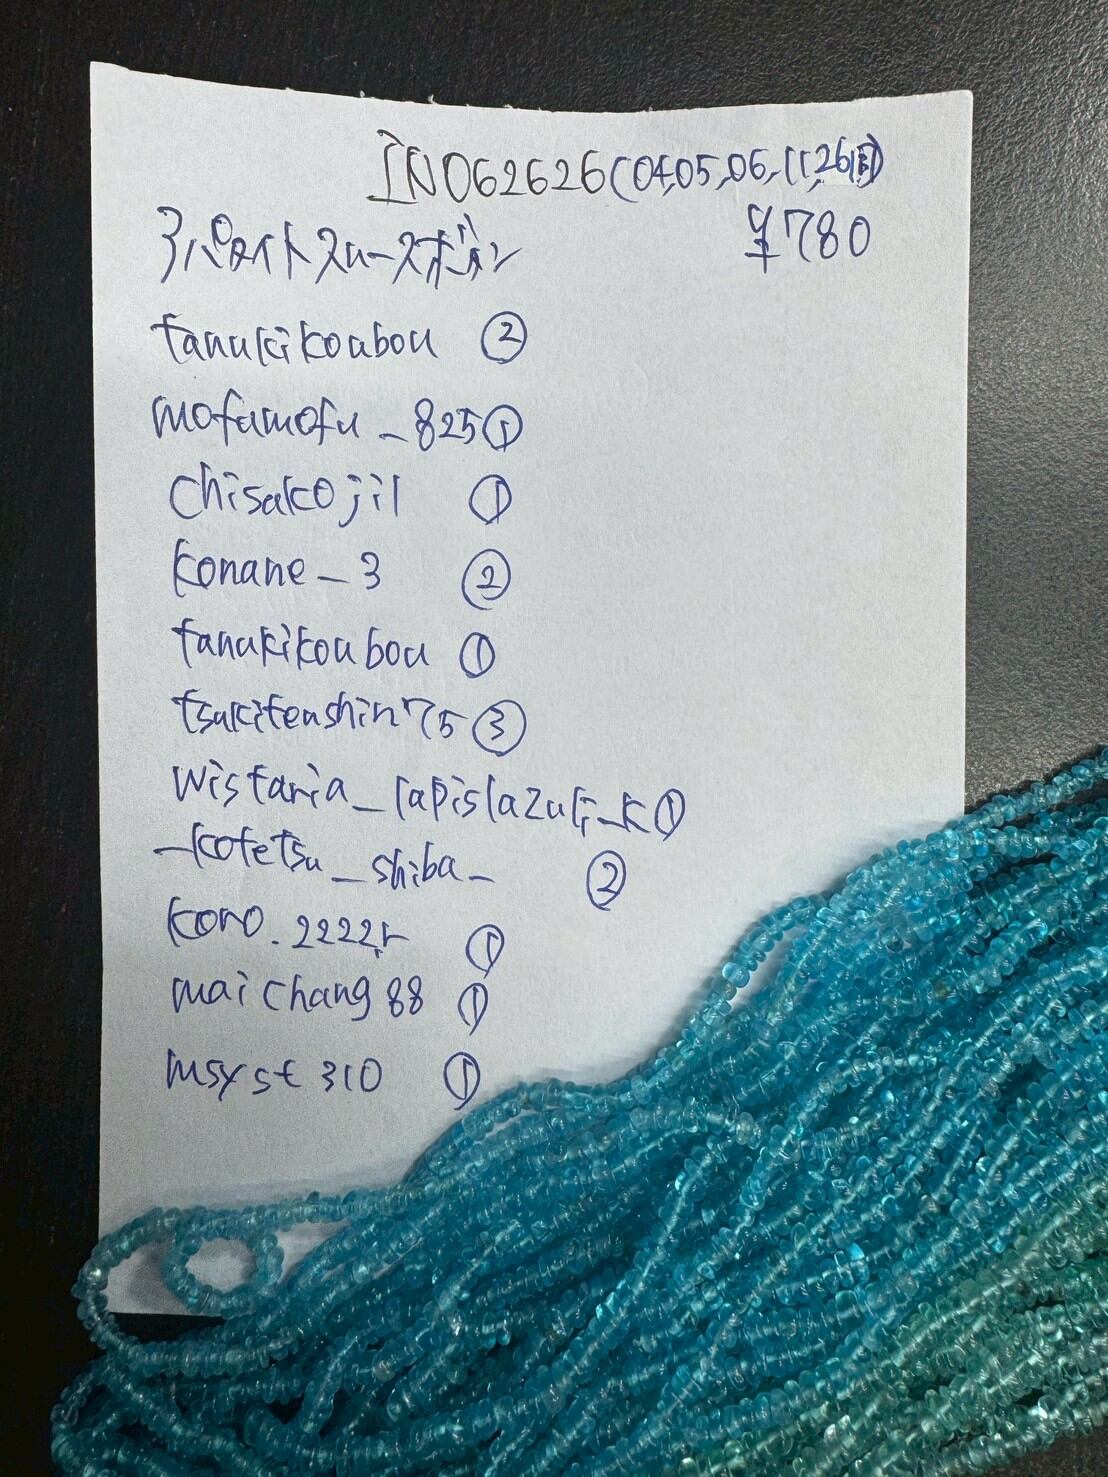 IN062626(04,05,06,11,26日)
アパタイトスムースボタン ¥780
tanukikoubou ②
mofumofu_825①
chisakojil ①
konane_3 ②
tanukikoubou ①
tsukitenshin75③
wistaria_lapislazuli_k①
_kotetsu_shiba_ ②
koro.2222r ①
maichang88 ①
msyst310 ①